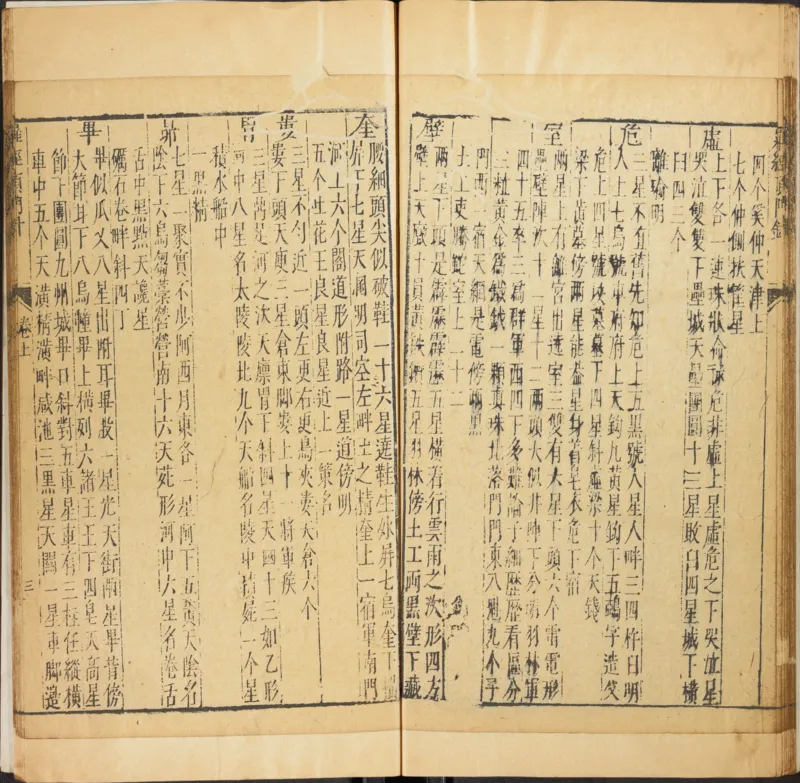 羅經頂門針
四个奚仲天津上
七个仲側扶筐星
虛 上下各一連珠狀命祿危非虛上星虛危之下哭泣星
哭泣雙雙下壘城天壘團圓十三星敗臼四星城下橫
臼四三个
離瑜明
危 三星不直舊先知危上五黑號人星人畔三四杵臼明
人上七烏號車府府上天鈎九黃星鈎下五鵶字造父
危上四星號墳墓墓下四星斜虛梁十个天錢
梁下黃墓傍兩星能蓋屋身着皂衣危下宿
室 兩星上有離宮出遶室三雙有六星下頭六个雷電形
壘壁陣次十二星十二兩頭大似井陣下分布羽林軍
四十五卒三爲群軍西四下多難論子細歷歷看區分
三粒黃金名鈇鉞一顆真珠北落門門東八魁九个子
門西一宿天綱是電傍兩黑
土工吏騰蛇室上二十二
壁 兩星下頭是霹靂霹靂五星橫着行雲雨之次形四方
壁上天厩十員黃鈇鑕五星羽林傍土工兩黑壁下藏
奎 腰細頭尖似破鞋一十六星遶鞋生外屏七烏奎下橫
屏下七星天溷明司空左畔土之精奎上一宿軍南門
河上六个閣道形附路一星道傍明
五个吐花王良星良星近上一策名
婁 三星不勻近一頭左更右更烏夾婁天倉六个
婁下頭天庾三星倉東脚婁上十一將軍侯
胃 三星鼎足河之次天廪胃下斜四星天囷十三如乙形
河中八星名大陵陵北九个天船名陵中積屍一个星
積水船中
一黑精
昴 七星一聚實不少阿西月東各一星阿下五黃天陰名
陰下六烏芻藁營營南十六天苑形河中六星名卷舌
舌中黑點天讒星
礪石卷畔斜四丁
畢 畢似瓜叉八星出附耳畢股一星光天街兩星畢背傍
天節耳下八烏幢畢上橫列六諸王王下四皂天高星
節下團圓九州城畢口斜對五車星車有三柱任縱橫
車中五个天潢精潢畔咸池三黑星天關一星車脚邊
羅經頂門針
卷上
三